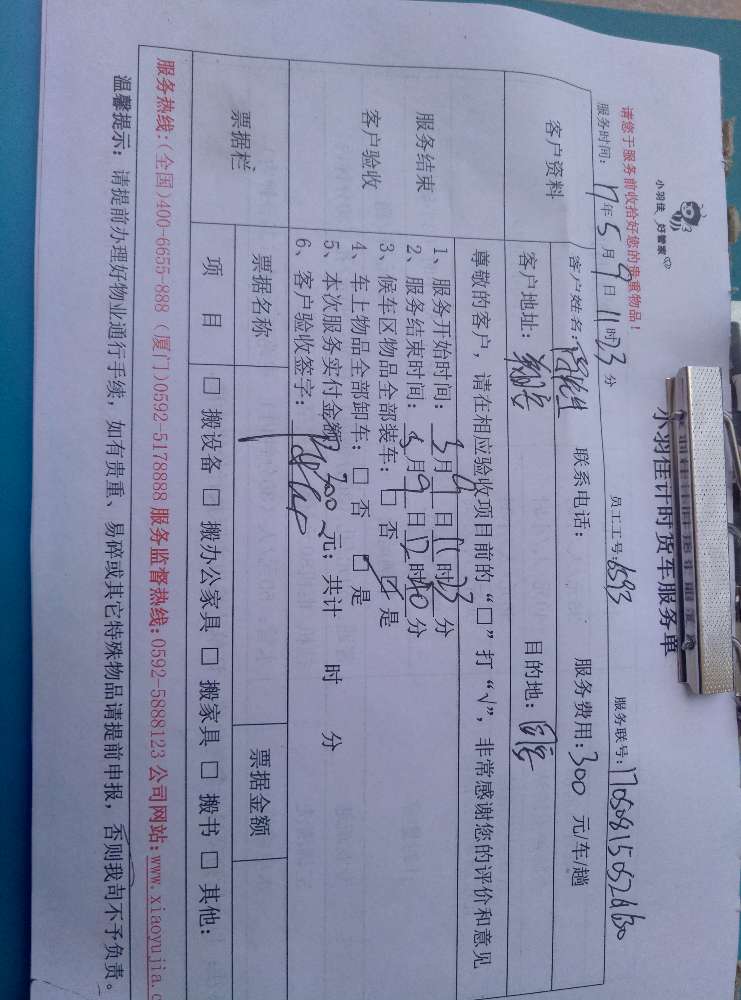 小羽佳 好管家
小羽佳计时货车服务单
请您于服务前收拾好您的贵重物品!
服务时间: 17年5月9日11时23分 员工工号: 6593 服务联号:
客户资料
客户姓名: 联系电话: 服务费用: 300 元/车/趟
客户地址: 翔安 目的地: 同安
服务结束
客户验收
尊敬的客户,请在相应验收项目前的“□”打“√”,非常感谢您的评价和意见
1、服务开始时间: 月9日11时23分
2、服务结束时间: 5月9日12时40分
3、候车区物品全部装车: □ 否 ☑ 是
4、车上物品全部卸车: □ 否 □ 是
5、本次服务实付金额 300 元; 共计 时 分
6、客户验收签字:
票据栏
票据名称 票据金额
项 目 □ 搬设备 □ 搬办公家具 □ 搬家具 □ 搬书 □ 其他:
服务热线:(全国)400-6655-888 (厦门)0592-5178888 服务监督热线:0592-5888123 公司网站:www.xiaoyujia.c
温馨提示: 请提前办理好物业通行手续,如有贵重、易碎或其它特殊物品请提前申报,否则我司不予负责。